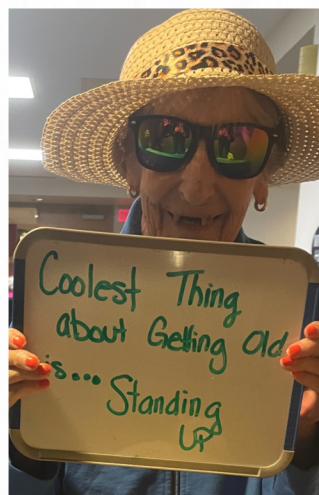 Coolest Thing
about Getting Old
is... Standing
UP